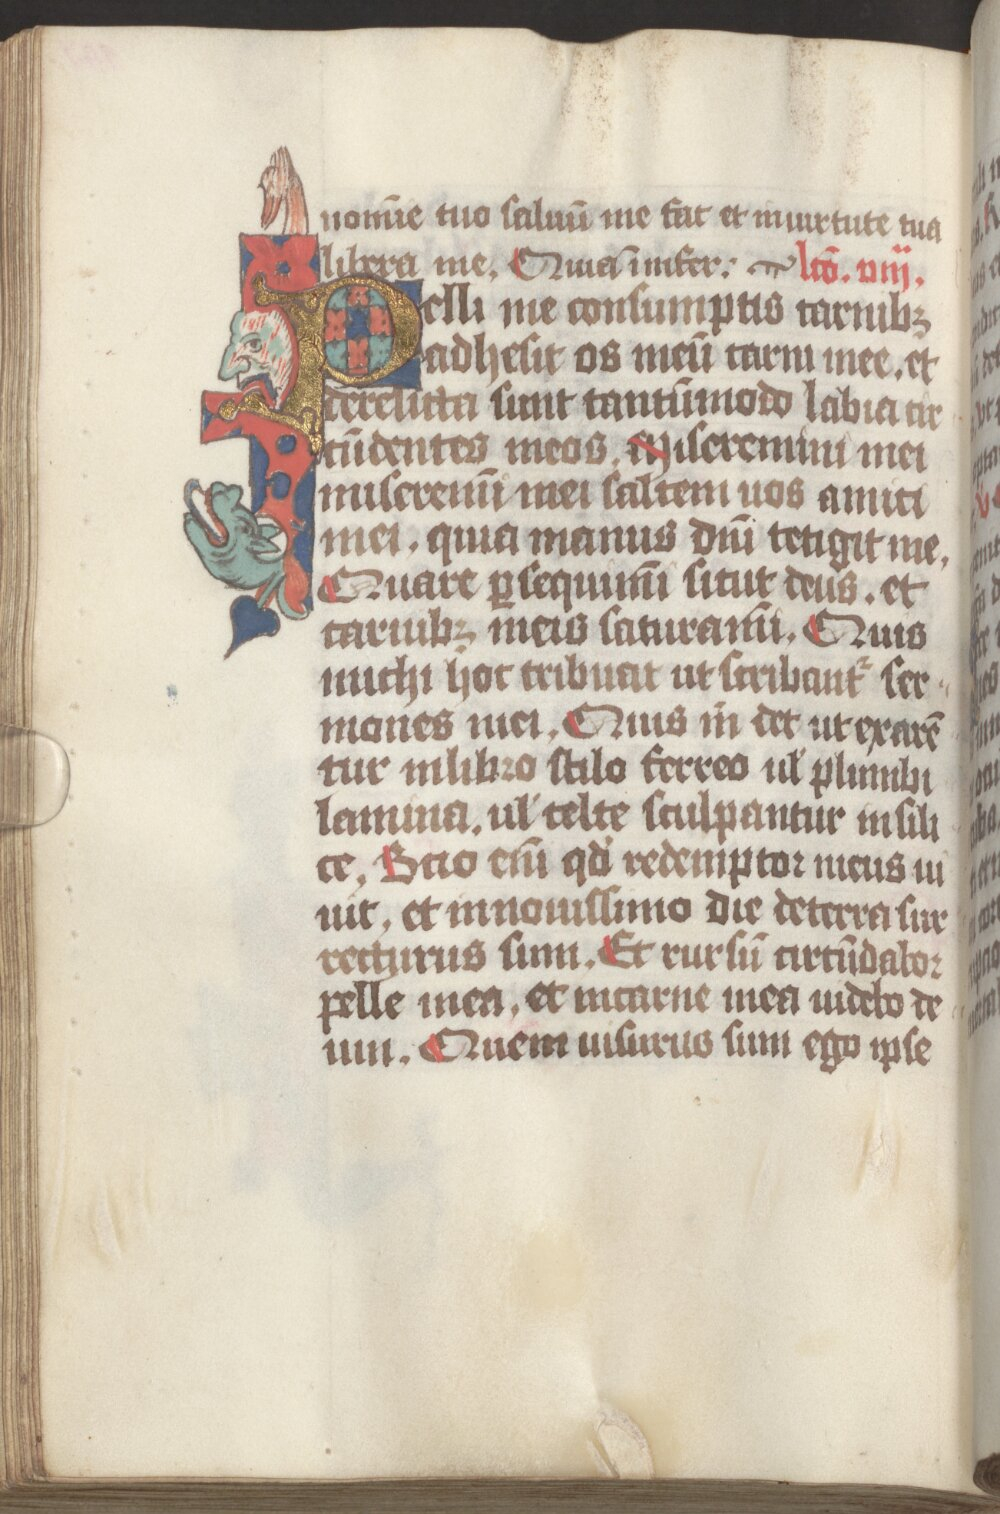 nomīe tuo saluū me fac et in uirtute tua
libera me. Quia in infer. lcō. viij.
Pelli me consumptis carnibꝫ
adhesit os meū carni mee. et
derelicta sunt tantūmodo labia cir
cū dentes meos. Miseremini mei
miseremī mei saltem uos amici
mei. quia manus dn̄i tetigit me.
Quare ꝑsequimī sicut deus. et
carnibꝫ meis saturamī. Quis
michi hoc tribuat ut scribant᷑ ser
mones mei. Quis m̄ det ut exarē
tur in libro stilo ferreo ul̓ plumbi
lamina. ul̓ celte sculpantur in sili
ce. Scio em̄ qd̓ redemptor meus ui
uit. et in nouissimo die de terra sur
recturus sum. Et rursū circūdabor
pelle mea. et in carne mea uidebo de
um. Quem uisurus sum ego ipse